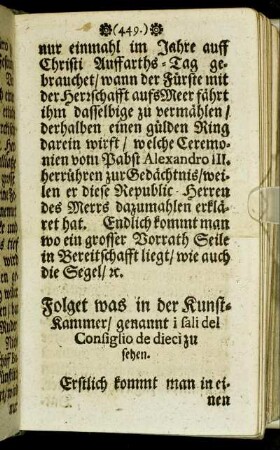 (449.)
nur einmahl im Jahre auff
Christi Auffarths-Tag ge-
brauchet/ wann der Fürste mit
der Herrschafft aufs Meer fährt
ihm dasselbige zu vermählen/
derhalben einen gülden Ring
darein wirft/ welche Ceremo-
nien vom Pabst Alexandro III.
herrühren zur Gedächtnis/ wei-
len er diese Republic-Herren
des Merrs dazumahlen erklä-
ret hat. Endlich kommt man
wo ein grosser Vorrath Seile
in Bereitschafft liegt/ wie auch
die Segel/ ꝛc.
Folget was in der Kunst-
Kammer/ genannt i sali del
Consiglio de dieci zu
sehen.
Erstlich kommt man in ei-
nen